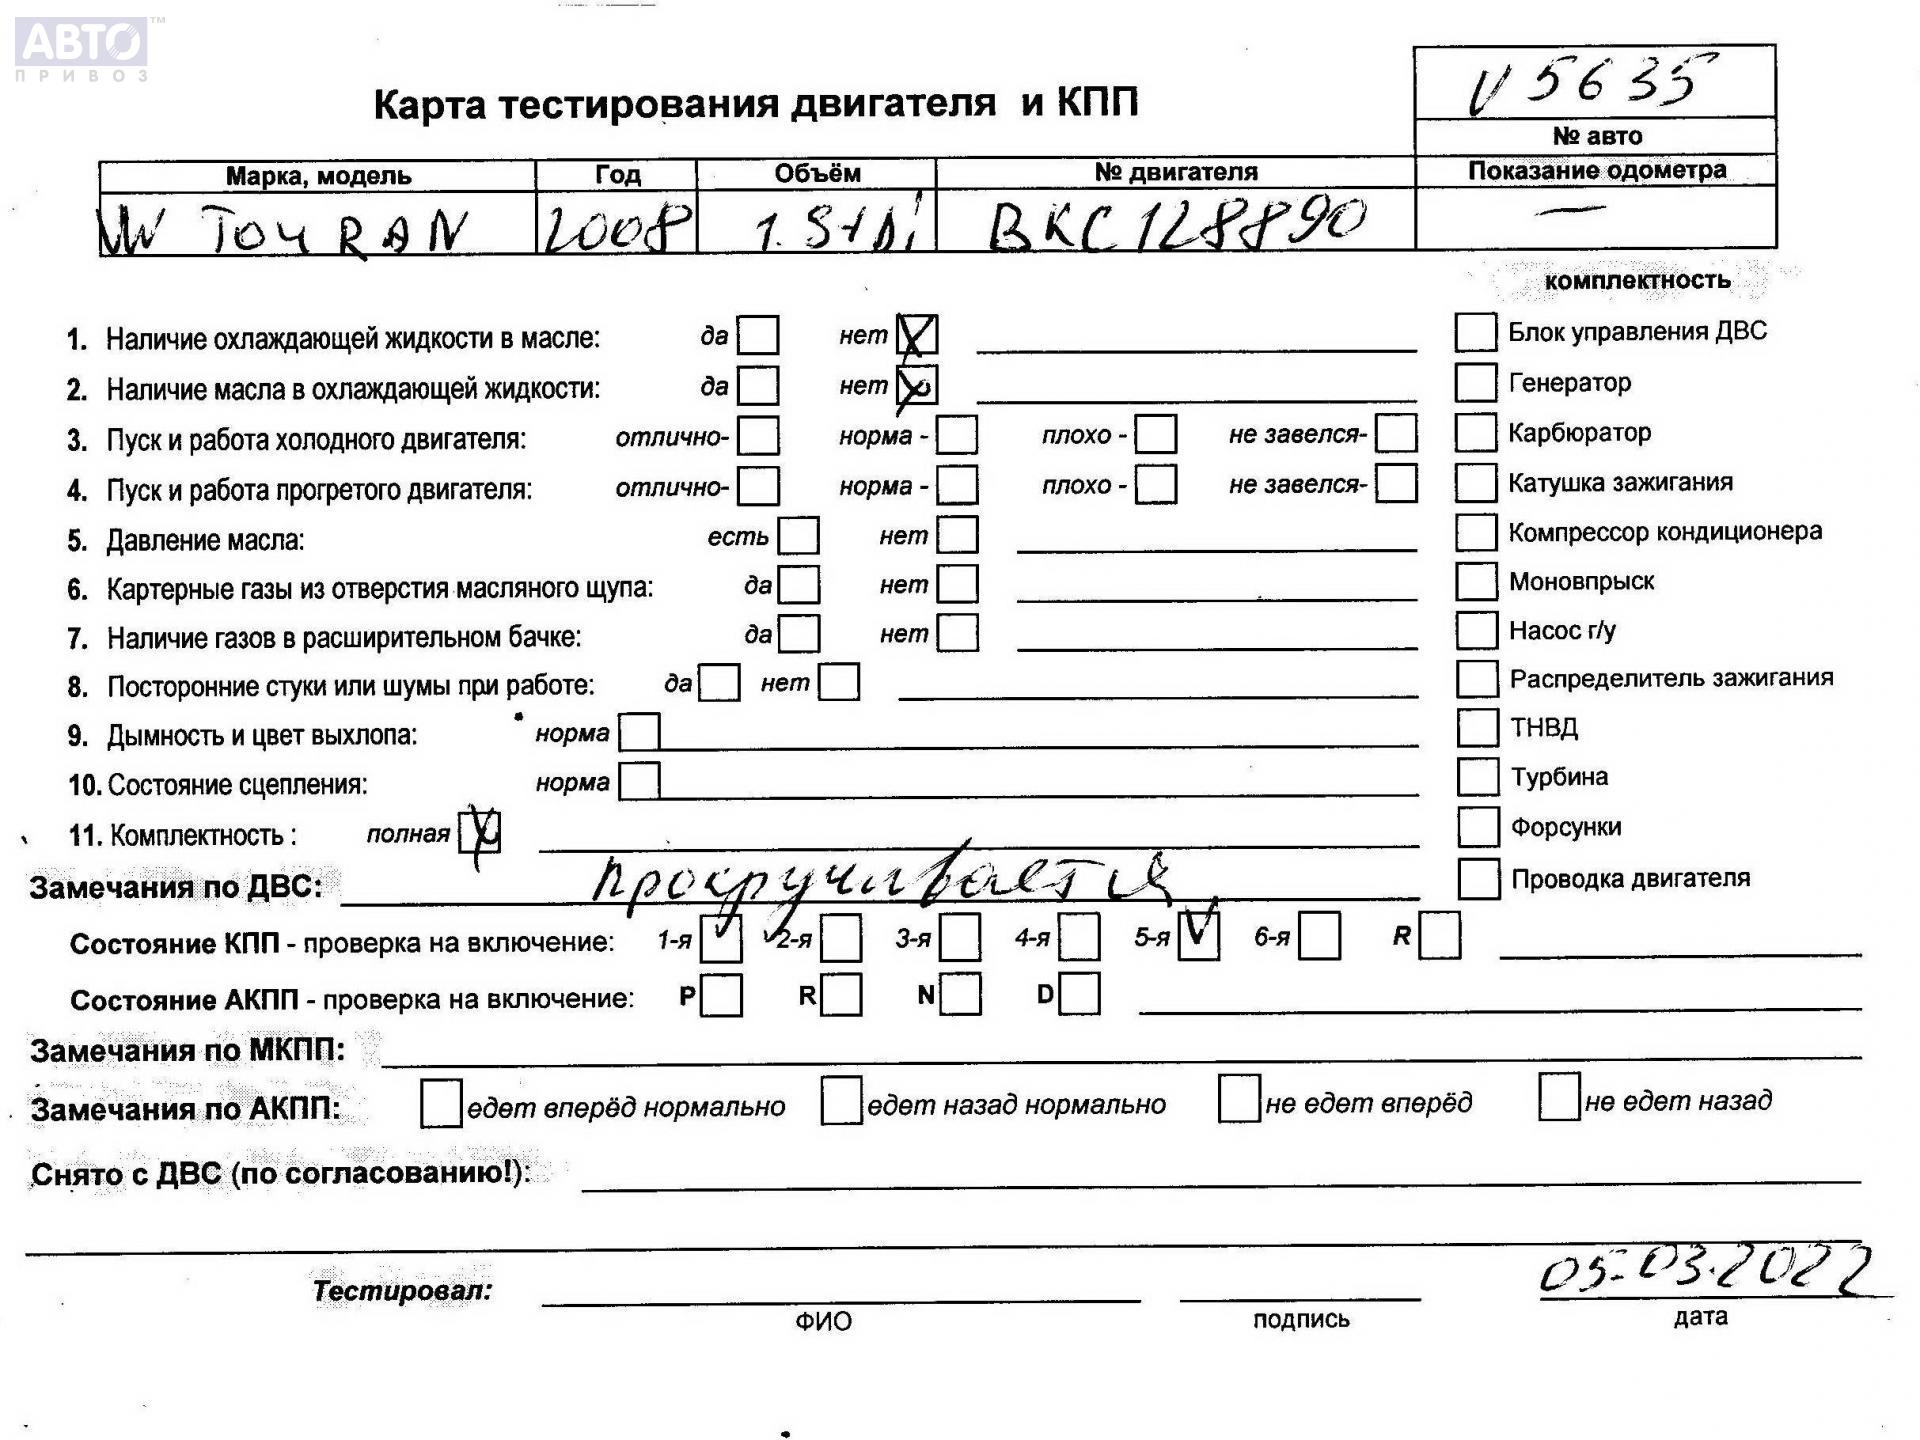 АВТО™
ПРИВОЗ
V5635
Карта тестирования двигателя и КПП
№ авто
Марка, модель Год Объём № двигателя Показание одометра
VW TOURAN 2008 BKC128890 —
комплектность
1. Наличие охлаждающей жидкости в масле: да нет Блок управления ДВС
2. Наличие масла в охлаждающей жидкости: да нет Генератор
3. Пуск и работа холодного двигателя: отлично- норма - плохо - не завелся- Карбюратор
4. Пуск и работа прогретого двигателя: отлично- норма - плохо - не завелся- Катушка зажигания
5. Давление масла: есть нет Компрессор кондиционера
6. Картерные газы из отверстия масляного щупа: да нет Моновпрыск
7. Наличие газов в расширительном бачке: да нет Насос г/у
8. Посторонние стуки или шумы при работе: да нет Распределитель зажигания
9. Дымность и цвет выхлопа: норма ТНВД
10. Состояние сцепления: норма Турбина
11. Комплектность : полная Форсунки
Замечания по ДВС: прокручивается Проводка двигателя
Состояние КПП - проверка на включение: 1-я 2-я 3-я 4-я 5-я 6-я R
Состояние АКПП - проверка на включение: P R N D
Замечания по МКПП:
Замечания по АКПП: едет вперёд нормально едет назад нормально не едет вперёд не едет назад
Снято с ДВС (по согласованию!):
05.03.2022
Тестировал:
ФИО подпись дата